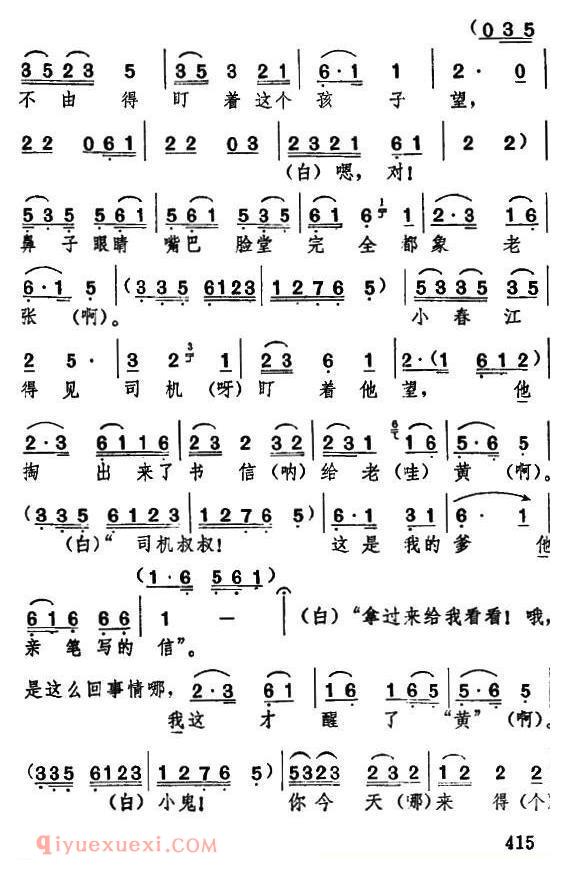 (0 3 5
3 5 2 3 5 | 3 5 3 2 1 | 6 · 1 1 | 2 · 0
不由得盯着这个孩子望，
2 2 0 6 1 | 2 2 0 3 | 2 3 2 1 6 1 | 2 2)
(白)嗯，对！
5 3 5 5 6 1 | 5 6 1 5 3 5 | 6 1 6 1 | 2 · 3 1 6
鼻子眼睛嘴巴脸堂完全都象老
6 · 1 5 | (3 3 5 6 1 2 3 | 1 2 7 6 5) | 5 3 5 3 5
张(啊)。小春江
2 5 · | 3 2 1 | 2 3 6 1 | 2 · (1 6 1 2)
得见司机(呀)盯着他望，他
2 · 3 6 1 1 6 | 2 3 2 3 2 | 2 3 1 1 6 | 5 · 6 5
掏出来了书信(呐)给老(哇)黄(啊)。
(3 3 5 6 1 2 3 | 1 2 7 6 5) | 6 · 1 3 1 | 6 · 1
(白)“司机叔叔！这是我的爹他
(1 · 6 5 6 1)
6 1 6 6 6 | 1 — | (白)“拿过来给我看看！哦，
亲笔写的信”。
是这么回事情哪， 2 · 3 6 1 | 1 6 1 6 5 | 5 · 6 5
我这才醒了“黄”(啊)。
(3 3 5 6 1 2 3 | 1 2 7 6 5) | 5 3 2 3 2 3 2 | 1 2 2
(白)小鬼！你今天(哪)来得(个)
qiyuexuexi.com
415